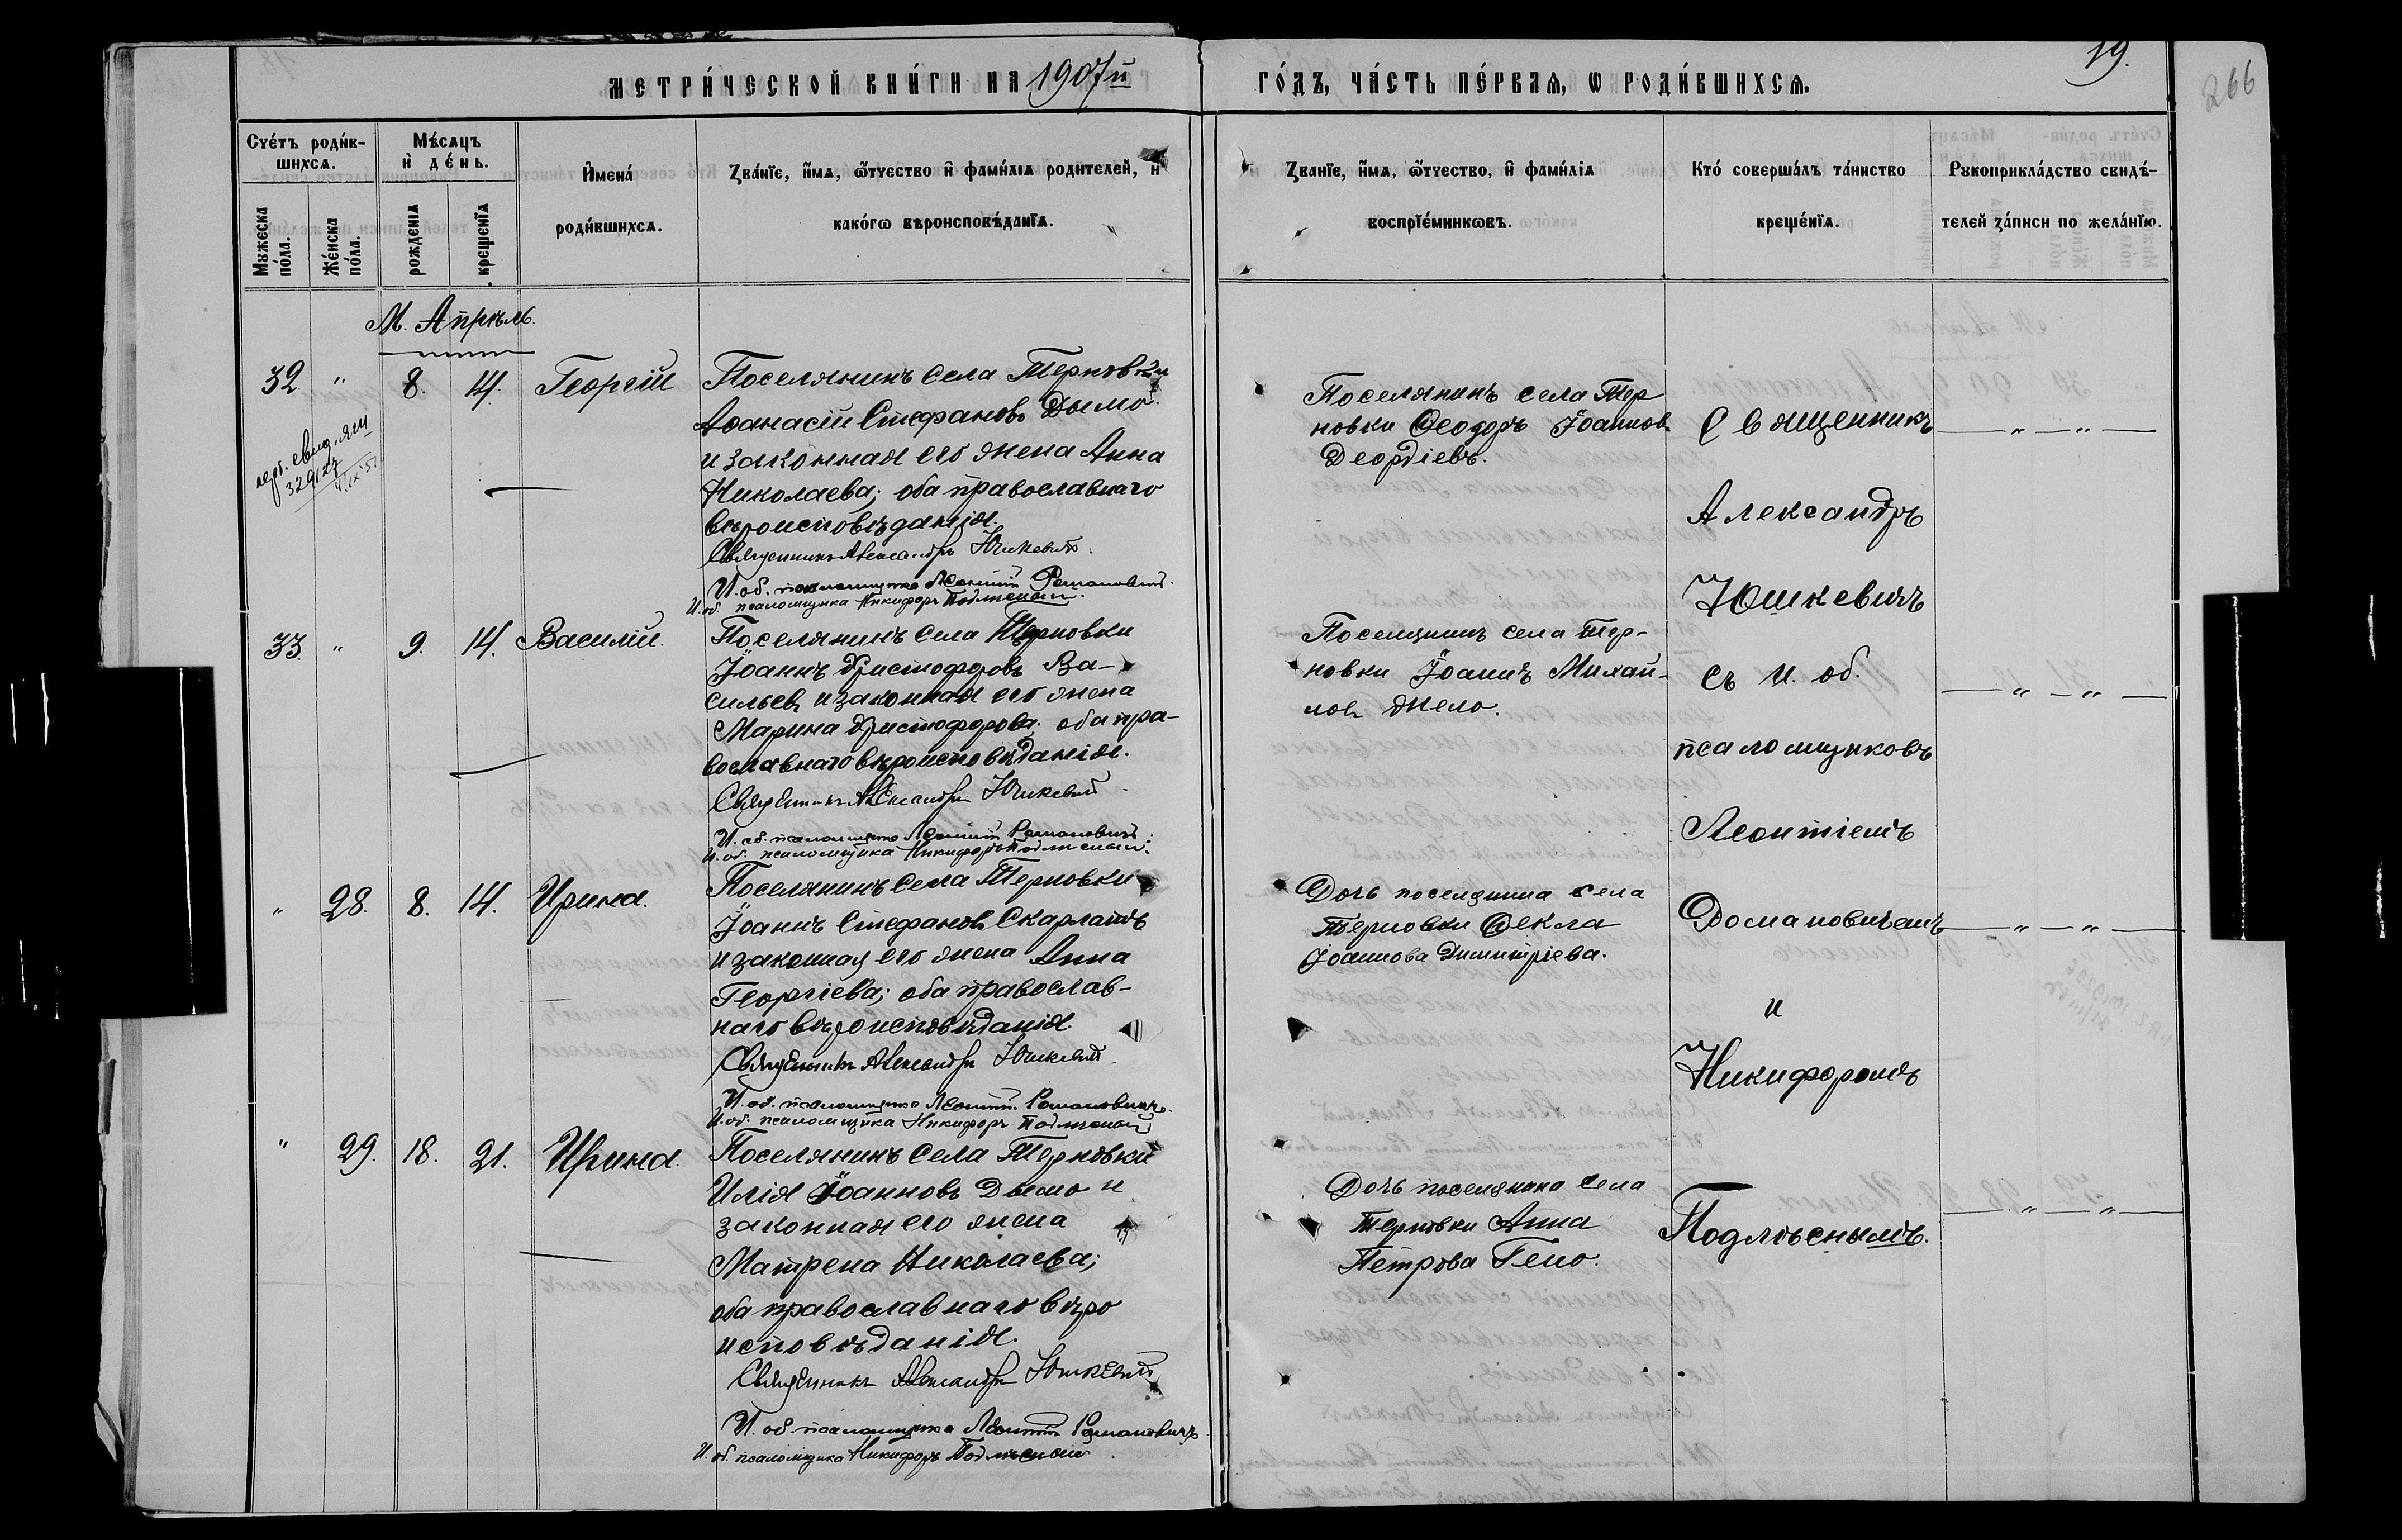 МЕТРИ́ЧЕСКОЙ КНИ́ГИ НА 1907й
ГО́ДЪ, ЧА́СТЬ ПЕ́РВАѦ, Ѡ РОДИ́ВШИХСѦ.
19.
266
Сче́тъ роди́в-
шихсѧ.
Мꙋжеска
по́ла.
Же́нска
по́ла.
Мѣ́сѧцъ
и҆ де́нь.
рожденїѧ
крещенїѧ.
И҆мена́
роди́вшихсѧ.
Зва́нїе, и҆́мѧ, ѻ҆́тчество и҆ фами́лїѧ родителей, и҆
како́гѡ вѣроисповѣ́данїѧ.
Зва́нїе, и҆́мѧ, ѻ҆́тчество, и҆ фами́лїѧ
воспрїе́мникѡвъ.
Кто́ соверша́лъ та́инство
креще́нїѧ.
Рꙋкоприкла́дство свидѣ́-
телей за́писи по жела́нїю.
М. Апрѣль.
32. " 8. 14. Георгій
Поселянинъ села Терновки
Аѳанасій Стефановъ Дымо
и законная его жена Анна
Николаева; оба православнаго
вѣроисповѣданія.
Священникъ Александръ Юшкевичъ.
И. об. псаломщика Леонтій Романовичъ.
И. об. псаломщика Никифоръ Подлѣсный.
Поселянинъ села Тер
новки Ѳеодоръ Іоаннов
Деордіевъ.
33. " 9. 14. Василій.
Поселянинъ села Терновки
Іоаннъ Христофоровъ Ва-
сильевъ и законная его жена
Марина Христофорова; оба пра-
вославнаго вѣроисповѣданія.
Священникъ Александръ Юшкевичъ.
И. об. псаломщика Леонтій Романовичъ.
И. об. псаломщика Никифоръ Подлѣсный.
Поселянинъ села Тер-
новки Іоаннъ Михай-
ловъ Жело.
" 28. 8. 14. Ирина.
Поселянинъ села Терновки
Іоаннъ Стефановъ Скарлатъ
и законная его жена Анна
Георгіева; оба православ-
наго вѣроисповѣданія.
Священникъ Александръ Юшкевичъ.
И. об. псаломщика Леонтій Романовичъ.
И. об. псаломщика Никифоръ Подлѣсный
Дочь поселянина села
Терновки Ѳекла
Іоаннова Димитріева.
" 29. 18. 21. Ирина.
Поселянинъ села Терновки
Илія Іоанновъ Дымо и
законная его жена
Матрена Николаева;
оба православнаго вѣро
исповѣданія.
Священникъ Александръ Юшкевичъ
И. об. псаломщика Леонтій Романовичъ.
И. об. псаломщика Никифоръ Подлѣсный.
Дочь поселянина села
Терновки Анна
Петрова Гено.
Священникъ
Александръ
Юшкевичъ
съ и. об.
псаломщиковъ
Леонтіемъ
Романовичемъ
и
Никифоромъ
Подлѣснымъ.
— " — " —
— " — " —
— " — " —
— " — " —